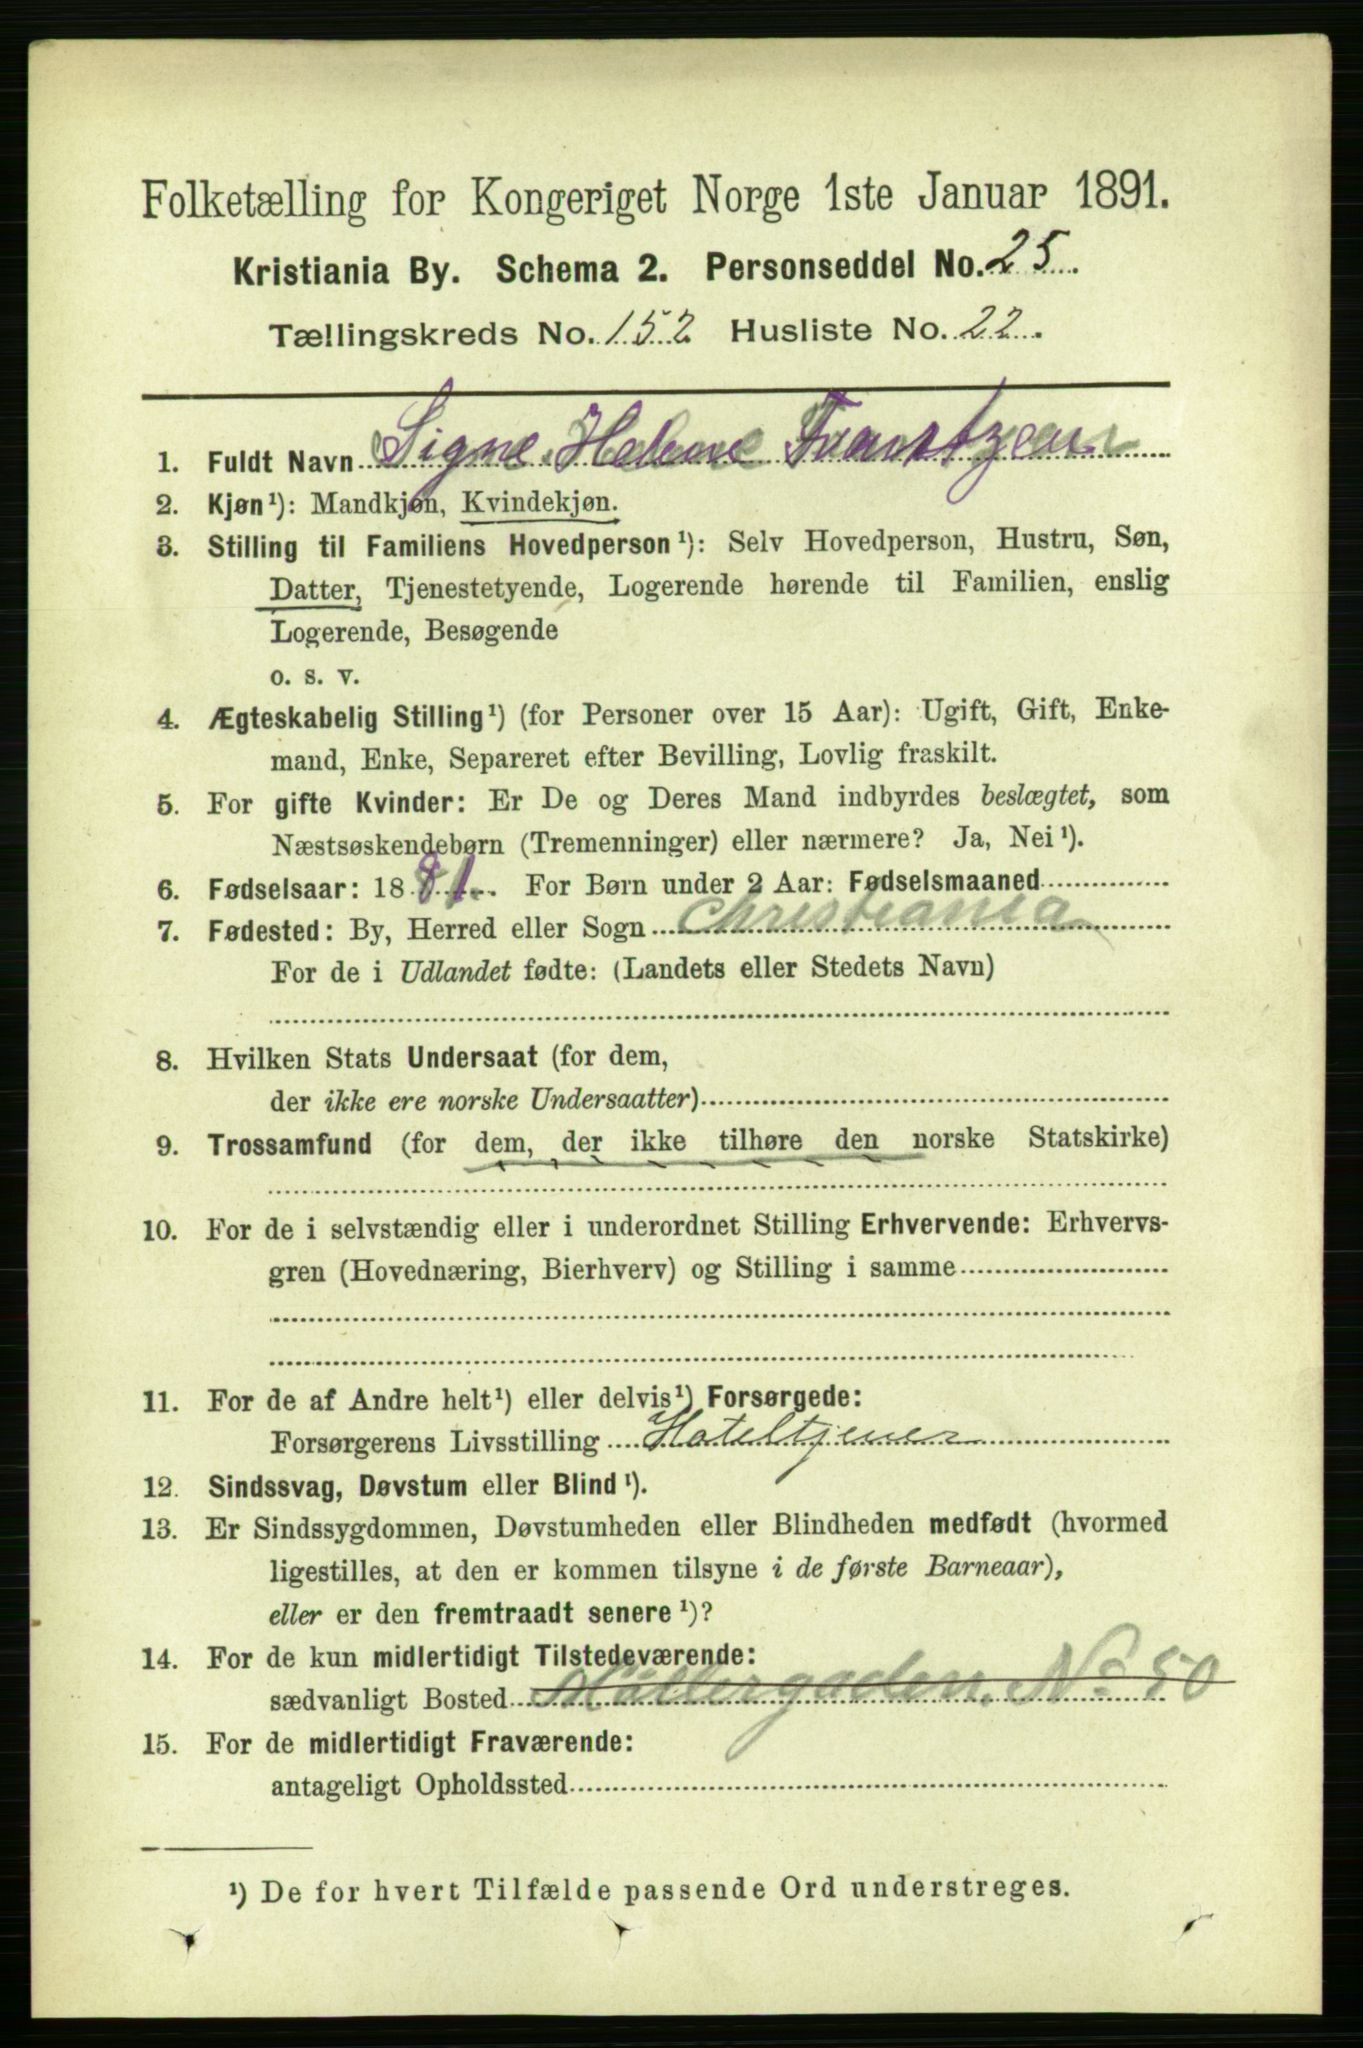 Folketælling for Kongeriget Norge 1ste Januar 1891.
Kristiania By. Schema 2. Personseddel No. 25.
Tællingskreds No. 152 Husliste No. 22.
1. Fuldt Navn Signe Helene Frantzen
2. Kjøn¹): Mandkjøn, Kvindekjøn.
3. Stilling til Familiens Hovedperson¹): Selv Hovedperson, Hustru, Søn,
Datter, Tjenestetyende, Logerende hørende til Familien, enslig
Logerende, Besøgende
o. s. v.
4. Ægteskabelig Stilling¹) (for Personer over 15 Aar): Ugift, Gift, Enke-
mand, Enke, Separeret efter Bevilling, Lovlig fraskilt.
5. For gifte Kvinder: Er De og Deres Mand indbyrdes beslægtet, som
Næstsøskendebørn (Tremenninger) eller nærmere? Ja, Nei¹).
6. Fødselsaar: 1881. For Børn under 2 Aar: Fødselsmaaned
7. Fødested: By, Herred eller Sogn Christiania
For de i Udlandet fødte: (Landets eller Stedets Navn)
8. Hvilken Stats Undersaat (for dem,
der ikke ere norske Undersaatter)
9. Trossamfund (for dem, der ikke tilhøre den norske Statskirke)
10. For de i selvstændig eller i underordnet Stilling Erhvervende: Erhvervs-
gren (Hovednæring, Bierhverv) og Stilling i samme
11. For de af Andre helt¹) eller delvis¹) Forsørgede:
Forsørgerens Livsstilling Hoteltjener
12. Sindssvag, Døvstum eller Blind¹).
13. Er Sindssygdommen, Døvstumheden eller Blindheden medfødt (hvormed
ligestilles, at den er kommen tilsyne i de første Barneaar),
eller er den fremtraadt senere¹)?
14. For de kun midlertidigt Tilstedeværende:
sædvanligt Bosted Møllergaden. No 50
15. For de midlertidigt Fraværende:
antageligt Opholdssted
¹) De for hvert Tilfælde passende Ord understreges.